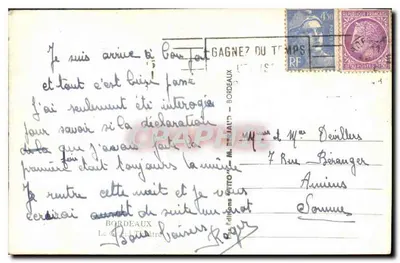 Je suis arrivé à bon port
et tout c'est bien passé
J'ai seulement été interogé
pour savoir si la déclaration
de la que j'avais faite la
première était toujours la même
Je rentre cette nuit et je vous
écrirai aussitot de suite un mot
Bons baisers Roger
GAGNEZ DU TEMPS
RF
M. DELBAUD - BORDEAUX
Mme et Mr Devillers
7 Rue Béranger
Amiens
Somme
BORDEAUX